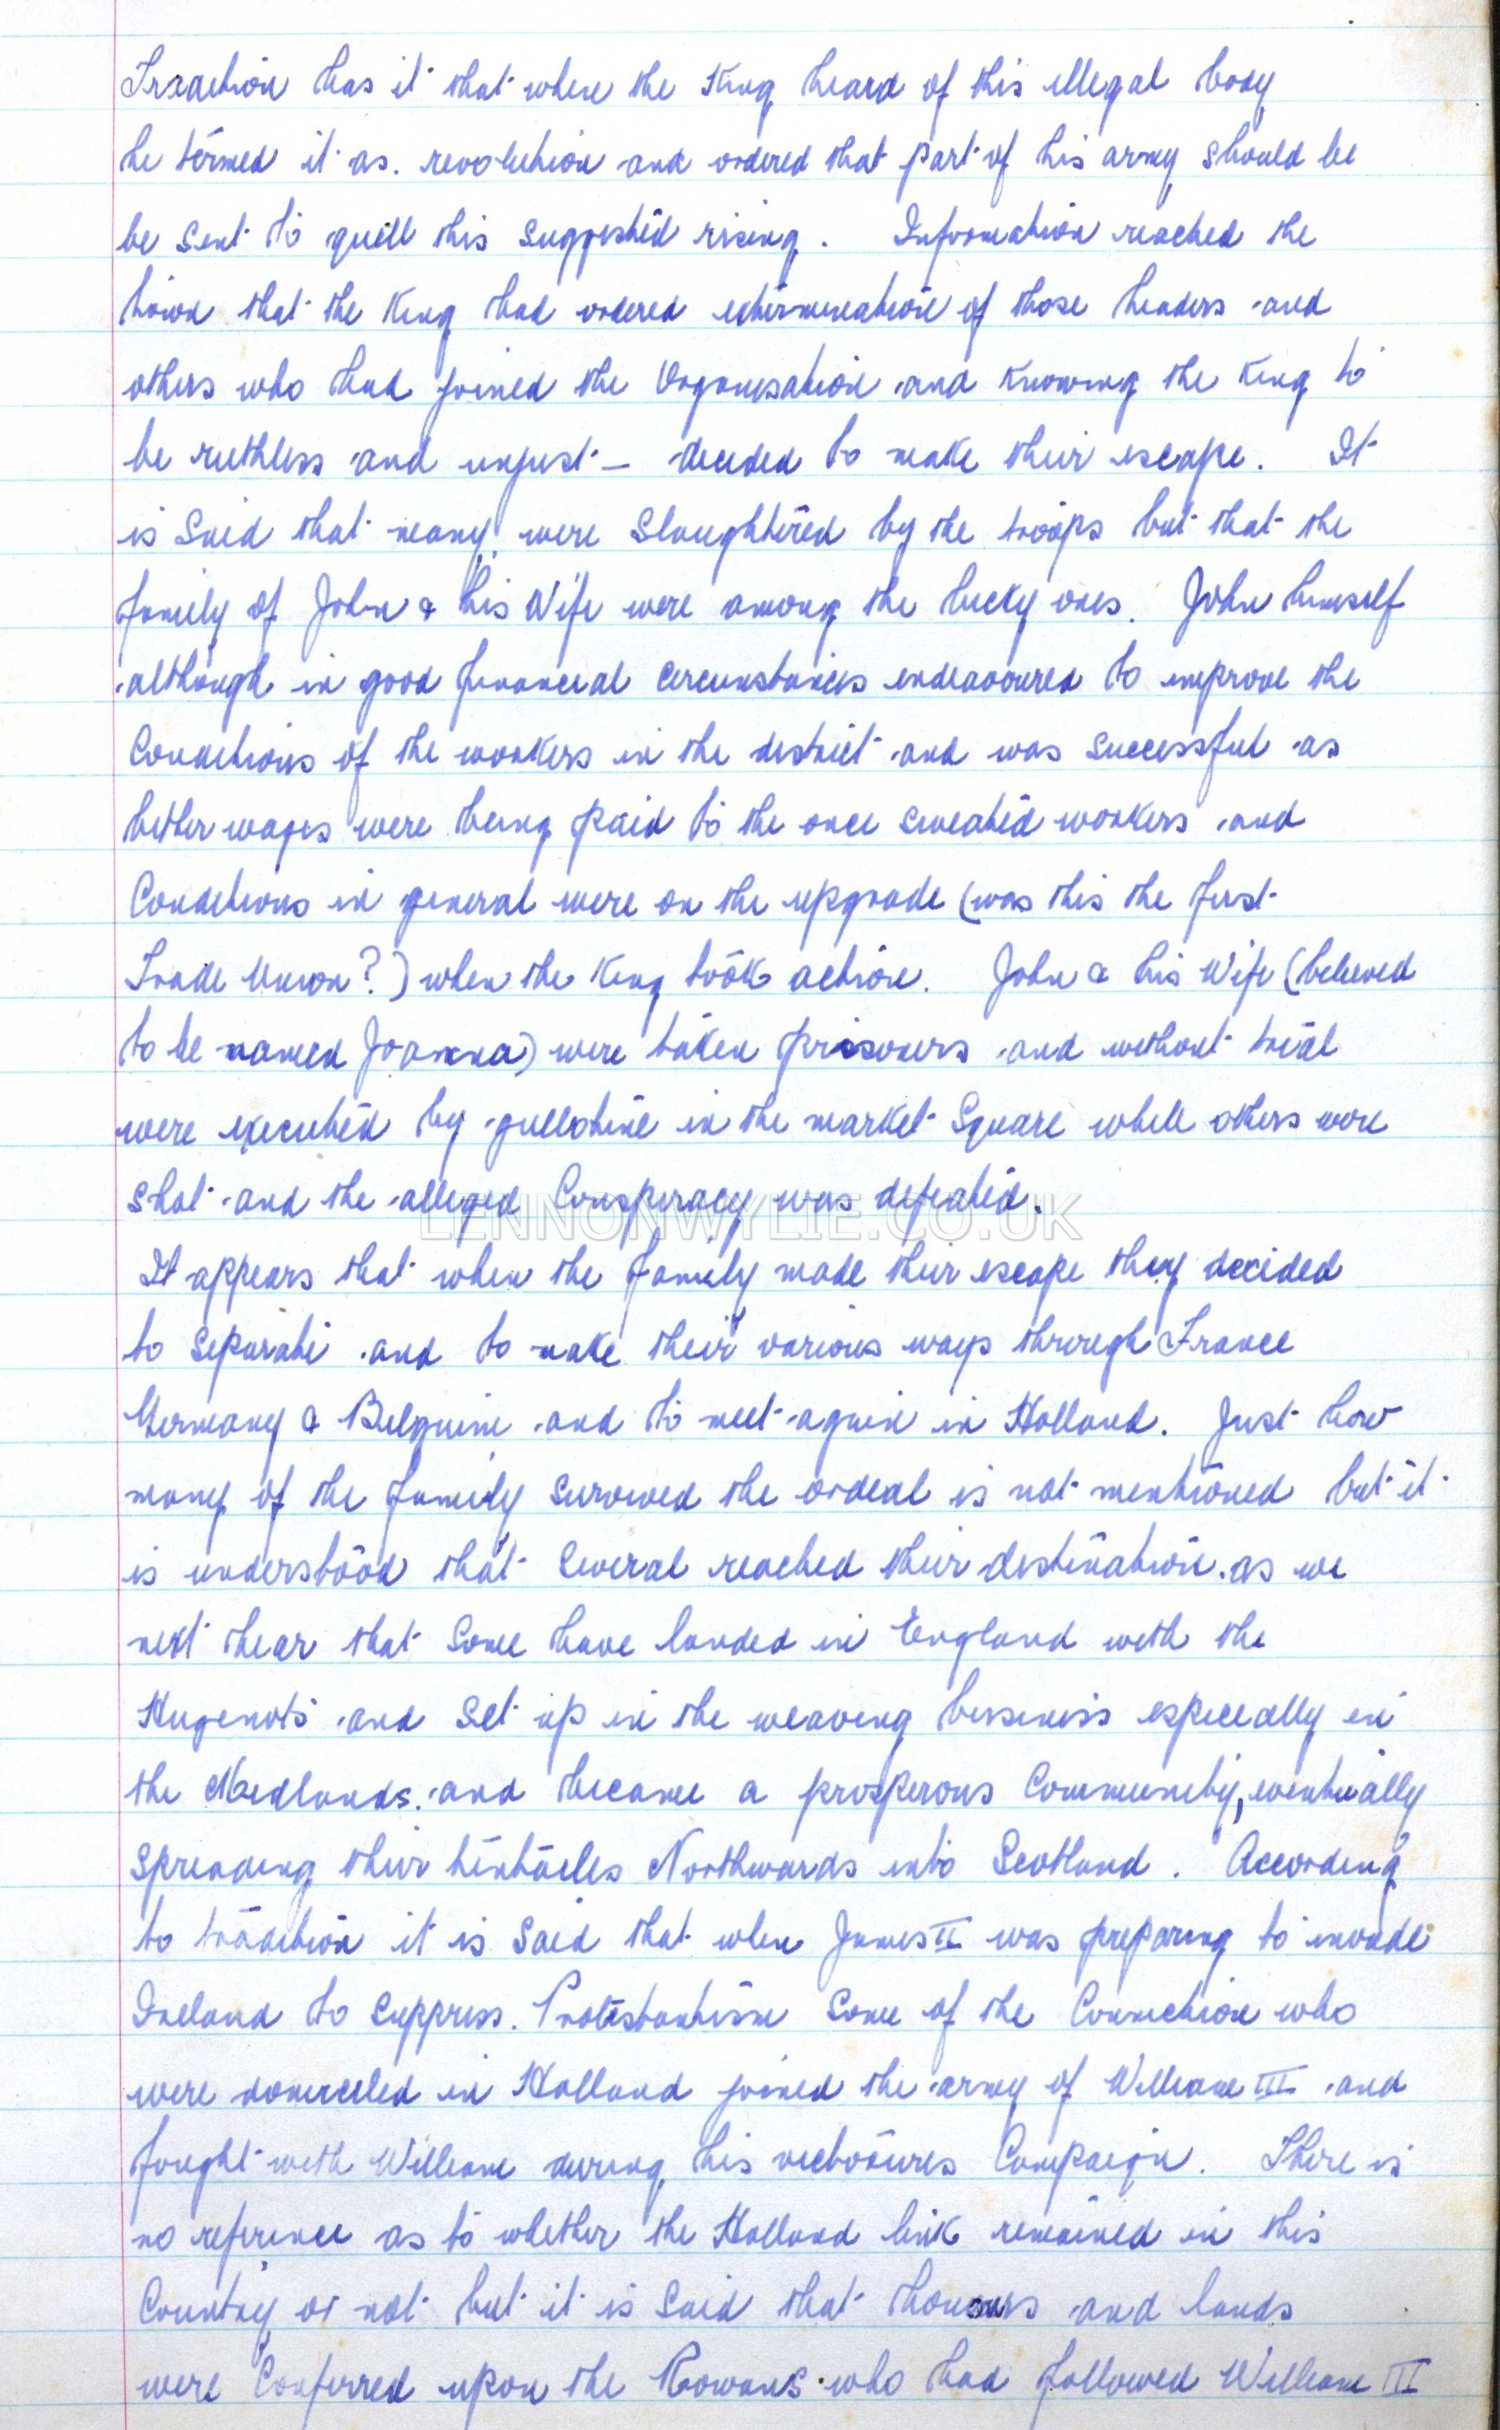 Tradition has it that when the King heard of this illegal body
he termed it as. revolution and ordered that part of his army should be
be sent to quell this suggested rising. Information reached the
town that the King had ordered extermination of those leaders and
others who had joined the Organisation and knowing the King to
be ruthless and unjust — decided to make their escape. It
is said that many were slaughtered by the troops but that the
family of John & his Wife were among the lucky ones. John himself
although in good financial circumstances endeavoured to improve the
Conditions of the workers in the district and was successful as
better wages were being paid to the once sweated workers and
Conditions in general were on the upgrade (was this the first
Trade Union?) when the King took action. John & his Wife (believed
to be named Joanna) were taken prisoners and without trial
were executed by guillotine in the market Square while others were
shot and the alleged Conspiracy was defeated.
LENNONWYLIE.CO.UK
It appears that when the family made their escape they decided
to separate and to make their various ways through France
Germany & Belguim and to meet again in Holland. Just how
many of the family survived the ordeal is not mentioned but it
is understood that several reached their destination. as we
next hear that some have landed in England with the
Hugenots and set up in the weaving business especially in
the Midlands. and became a prosperous Community, eventually
spreading their tentacles Northwards into Scotland. According
to tradition it is said that when James II was preparing to invade
Ireland to suppress. Protestantism some of the Connection who
were domiciled in Holland joined the army of William III and
fought with William during his victorious Campaign. There is
no reference as to whether the Holland link remained in this
Country or not but it is said that honours and lands
were Conferred upon the Rowans who had followed William III